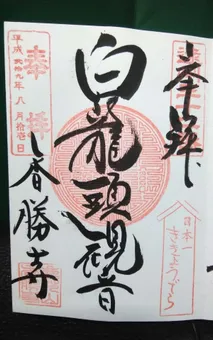 奉拝
白龍頭観音
香勝寺
奉拝
平成 弐拾九年 八月 拾壱日
日本一
ききょうでら